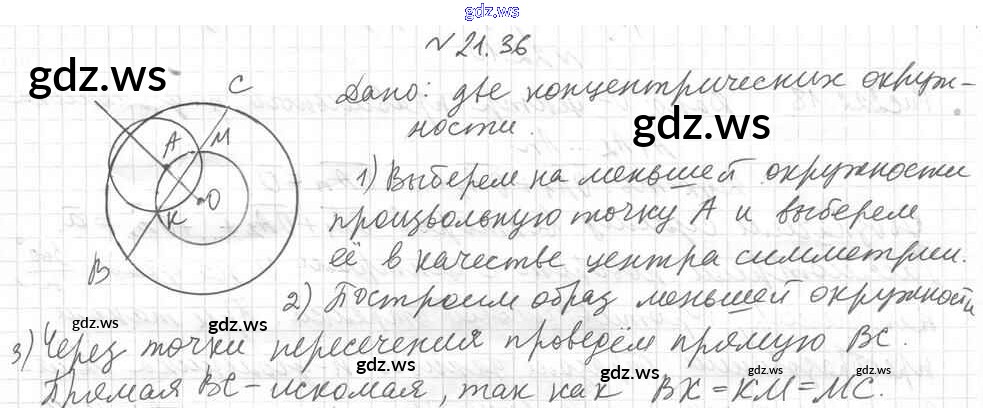 gdz.ws
№ 21.36
gdz.ws
C
Дано: две концентрических окруж-
ности.
gdz.ws
A
M
O
K
B
1) Выберем на меньшей окружности
произвольную точку A и выберем
её в качестве центра симметрии.
2) Построим образ меньшей окружности
gdz.ws
gdz.ws
3) Через точки пересечения проведём прямую BC.
gdz.ws
gdz.ws
gdz.ws
gdz.ws
Прямая BC – искомая, так как BK = KM = MC.